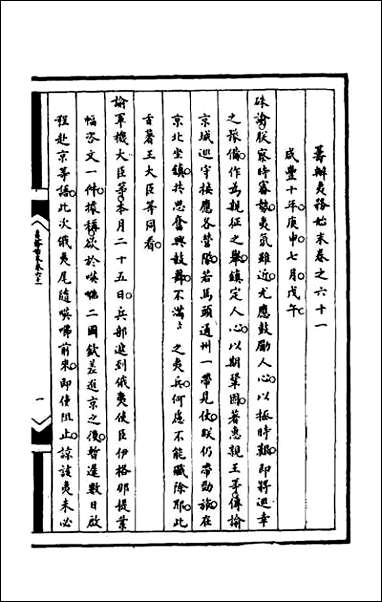 籌辦夷務始末卷之六十一
咸豐十年庚申七月戊午
硃諭朕察時審勢夷氛雖近尤應鼓勵人心以拯時艱即將巡幸
之張備作為親征之舉鎮定人心以期鞏固著惠親王等傳諭
京城巡守接應各營隊若馬頭通州一帶見仗朕仍帶勁旅在
京北坐鎮共思奮興鼓舞不滿
之夷兵何慮不能殲除耶此
旨著王大臣等同看
諭軍機大臣等本月二十五日兵部遞到俄夷使臣伊格那提業
幅咨文一件據稱欲於㖸㗎二國欽差進京之後暫遲數日啟
程赴京等語此次俄夷尾隨㖸咈前來即使阻止諒該夷未必
一